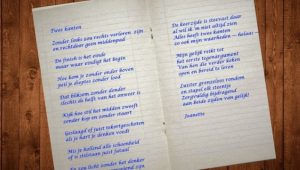 Twee kanten
Zonder links zou rechts verloren zijn
en rechtdoor geen middenpad
De finish is het einde
maar waar eindigt het begin
Hoe kom je zonder onder boven
je diep je zonder ondiep?
Dat zonder denken
slechts de helft van het is
Kijk hoe stil het midden zweeft
zonder kop en zonder staart
Geslaagd of juist tekortgeschoten
als je hart je denken voedt
Mis je alle schoonheid
of is stilstaan fataal
En zou licht zonder het donker
De keerzijde is steevast daar
al wil ik 'm niet altijd zien
Alles heeft twee kanten
zo ook mijn waarheden --- helaas ---
Mijn gelijk reikt tot
het eerste tegenargument
Van keer op keer opnieuw
open en bereid te leren
Luister grenzeloos rondom
en stapel elk steentje
Zorgvuldig bijdragend
aan beide zijden van gelijk!
Jeanette